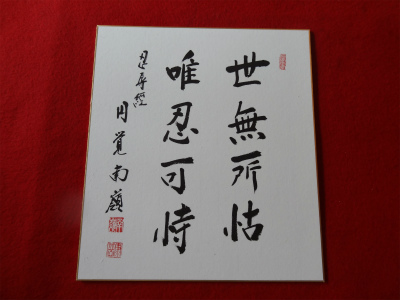 世無所怙
唯忍可恃
忍辱經
円覚南嶺